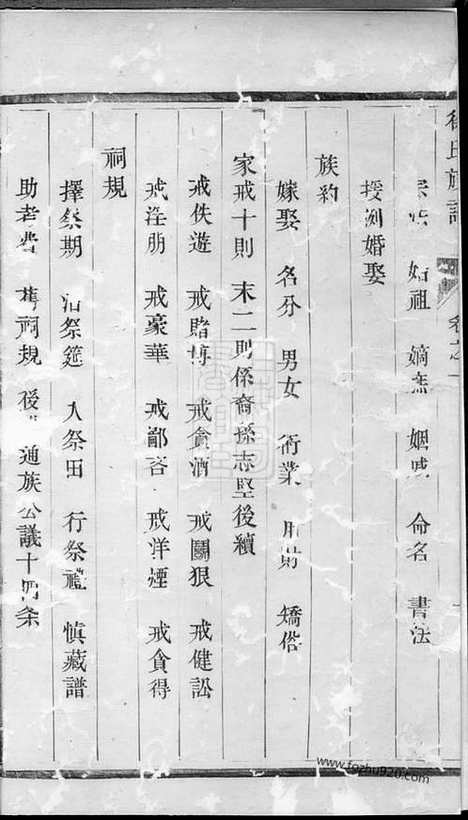 氏族譜 卷之一
始祖 嫡庶 姻戚 命名 書法
授例婚娶
族約
嫁娶 名分 男女 術業 用財 矯俗
家戒十則 末二則係裔孫志堅後續
戒佚遊 戒賭博 戒貪酒 戒鬭狠 戒健訟
戒淫朋 戒豪華 戒鄙吝 戒洋煙 戒貪得
祠規
擇祭期 祭筵 入祭田 行祭禮 慎藏譜
助考費 舊祠規 後 通族公議十四条
www.fozhu920.com